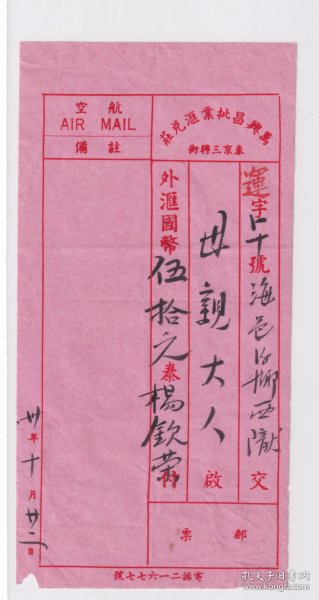 航空
AIR MAIL
註備
萬興昌批業滙兌莊
泰京三聘街
運字 號海邑 鄉西隴 交
母親大人 啟
外滙國幣伍拾元 泰楊欽榮付
卅年十月廿二日
郵票
電話二一六七七號
孔夫子旧书网